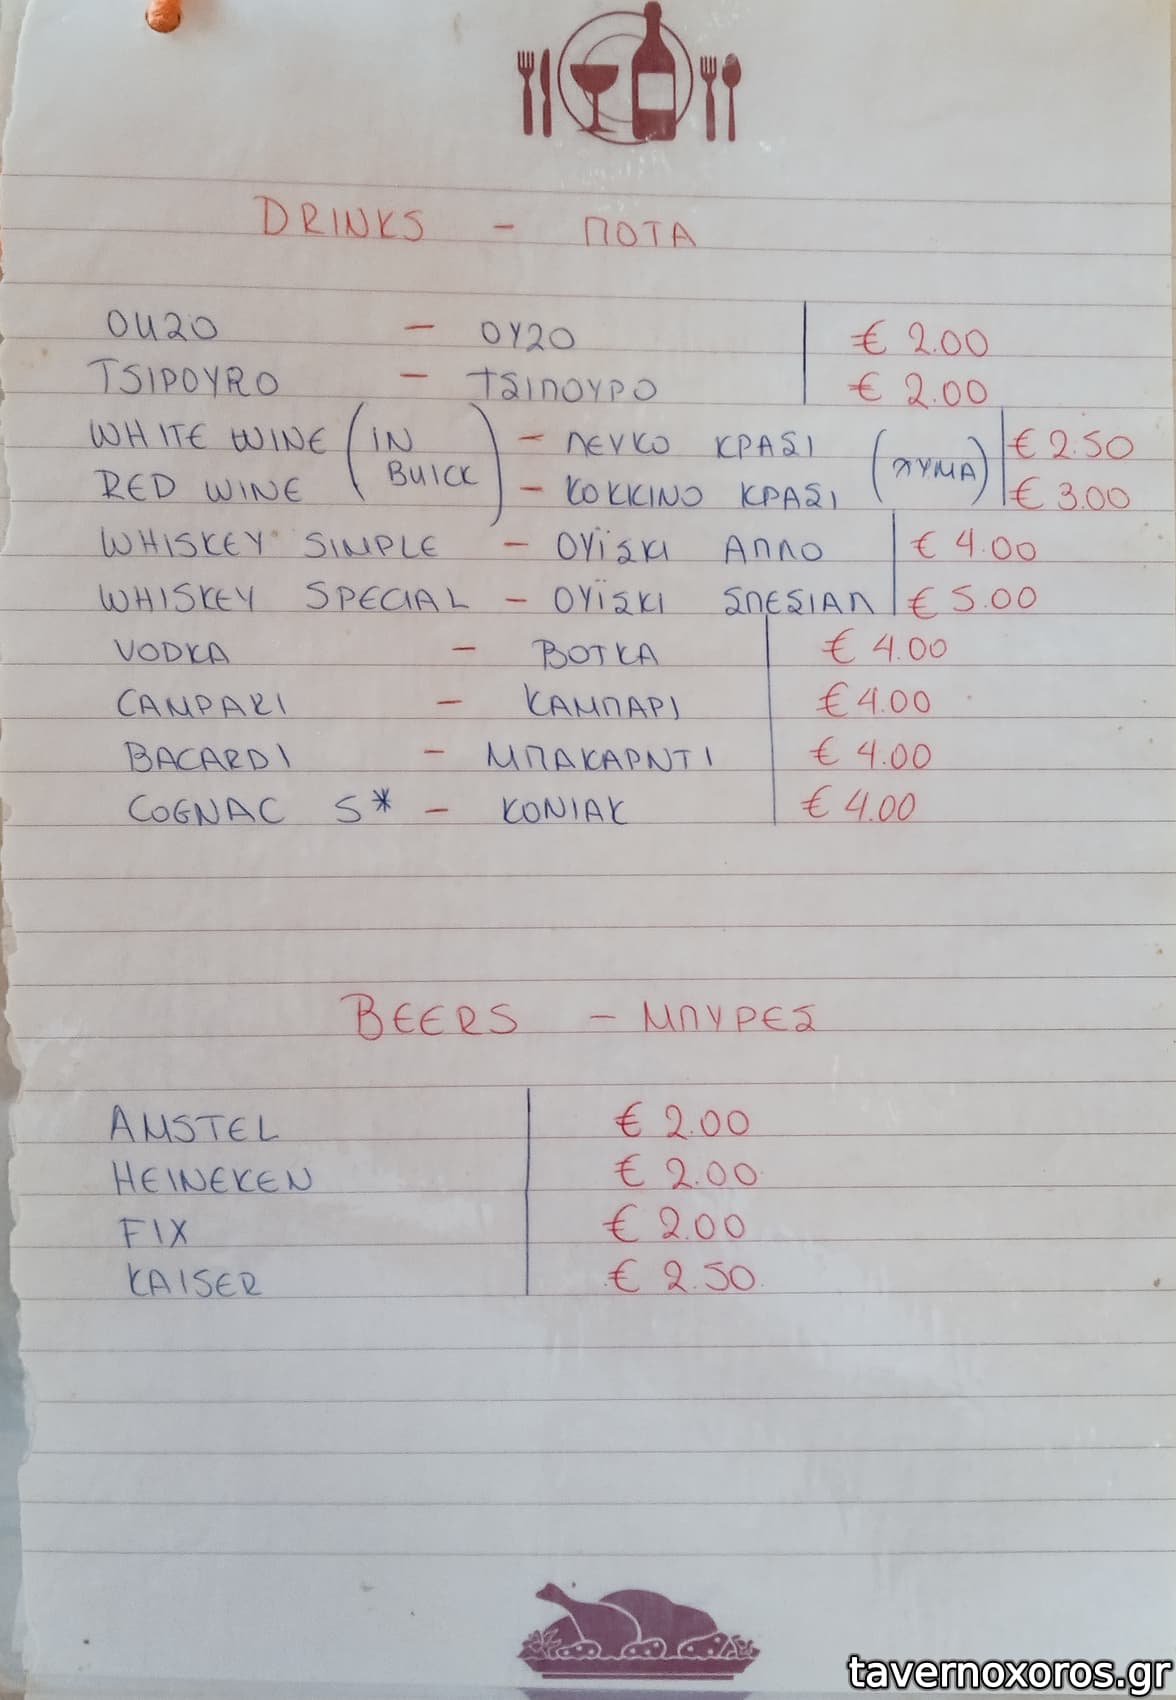 DRINKS - ΠΟΤΑ
OUZO - ΟΥΖΟ € 2.00
TSIPOYRO - ΤΣΙΠΟΥΡΟ € 2.00
WHITE WINE (IN BUICK) - ΛΕΥΚΟ ΚΡΑΣΙ (ΧΥΜΑ) € 2.50
RED WINE - ΚΟΚΚΙΝΟ ΚΡΑΣΙ € 3.00
WHISKEY SIMPLE - ΟΥΪΣΚΙ ΑΠΛΟ € 4.00
WHISKEY SPECIAL - ΟΥΪΣΚΙ ΣΠΕΣΙΑΛ € 5.00
VODKA - ΒΟΤΚΑ € 4.00
CAMPARI - ΚΑΜΠΑΡΙ € 4.00
BACARDI - ΜΠΑΚΑΡΝΤΙ € 4.00
COGNAC 5* - ΚΟΝΙΑΚ € 4.00
BEERS - ΜΠΥΡΕΣ
AMSTEL € 2.00
HEINEKEN € 2.00
FIX € 2.00
KAISER € 2.50
tavernoxoros.gr